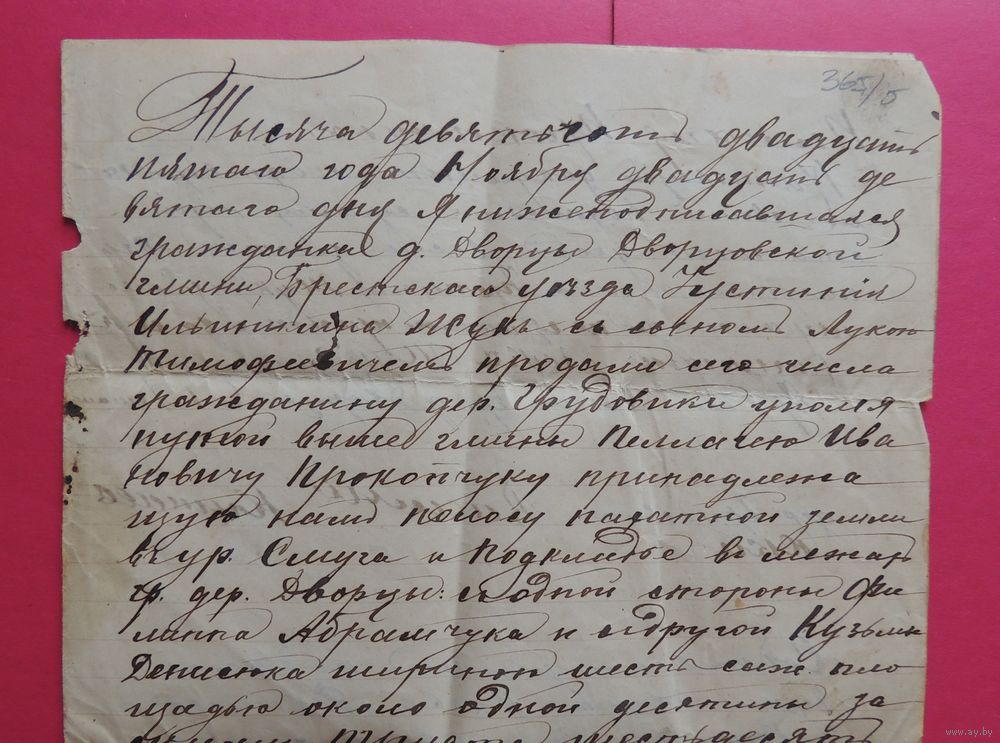 365/5
Тысяча девятьсотъ двадцать
пятаго года Ноября двадцать де
вятаго дня Я нижеподписавшаяся
гражданка д. Дворцы Дворцовской
гмины, Брестскаго уѣзда Густинія
Ильинична Жукъ съ сыномъ Лукою
Тимофеевичемъ продали сего числа
гражданину дер. Грудовики упомя
нутой выше гмины Ива
новичу Прокопчуку принадлежа
щую намъ полосу пахатной земли
въ ур. Смуга и Подкладье въ межах
гр. дер. Дворцы: с одной стороны Фи
липпа Абрамчука и сдругой Кузьмы
Денисюка шириною шесть саж. пло
щадью около одной десятины за
Триста шестьдесятъ
www.ay.by